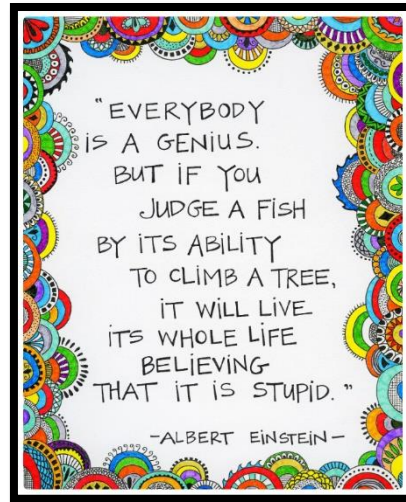 "EVERYBODY
iS A GENiUS.
BUT iF YOU
JUDGE A FiSH
BY iTS ABiLiTY
TO CLiMB A TREE,
iT WiLL LiVE
iTS WHOLE LiFE
BELiEViNG
THAT iT iS STUPiD."
-ALBERT EiNSTEiN-